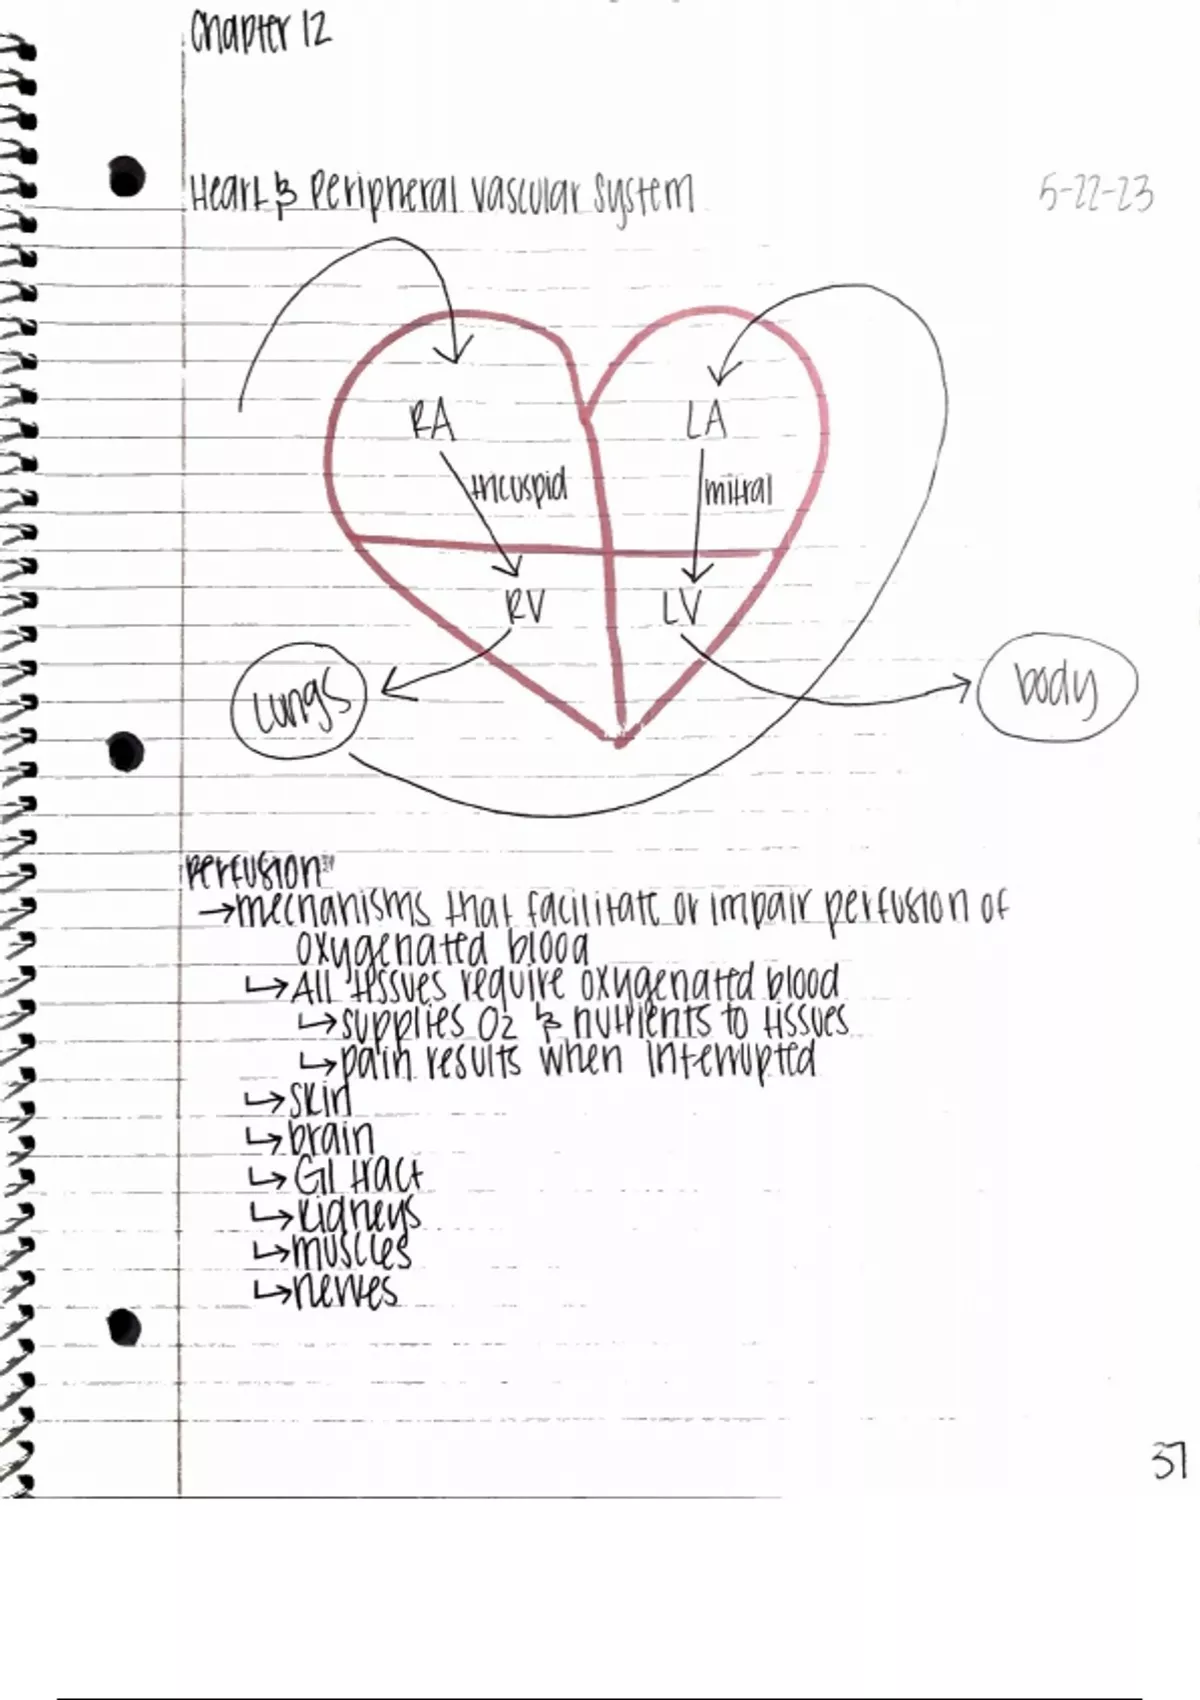 Chapter 12
Heart & Peripheral Vascular System
5-22-23
RA
LA
tricuspid
mitral
RV
LV
lungs
body
Perfusion:
→mechanisms that facilitate or impair perfusion of
oxygenated blood
↳All tissues require oxygenated blood
↳supplies O2 & nutrients to tissues
↳pain results when interrupted
↳skin
↳brain
↳GI tract
↳kidneys
↳muscles
↳nerves
37